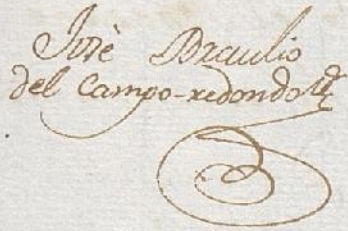 José Braulio
del Campo-redondo